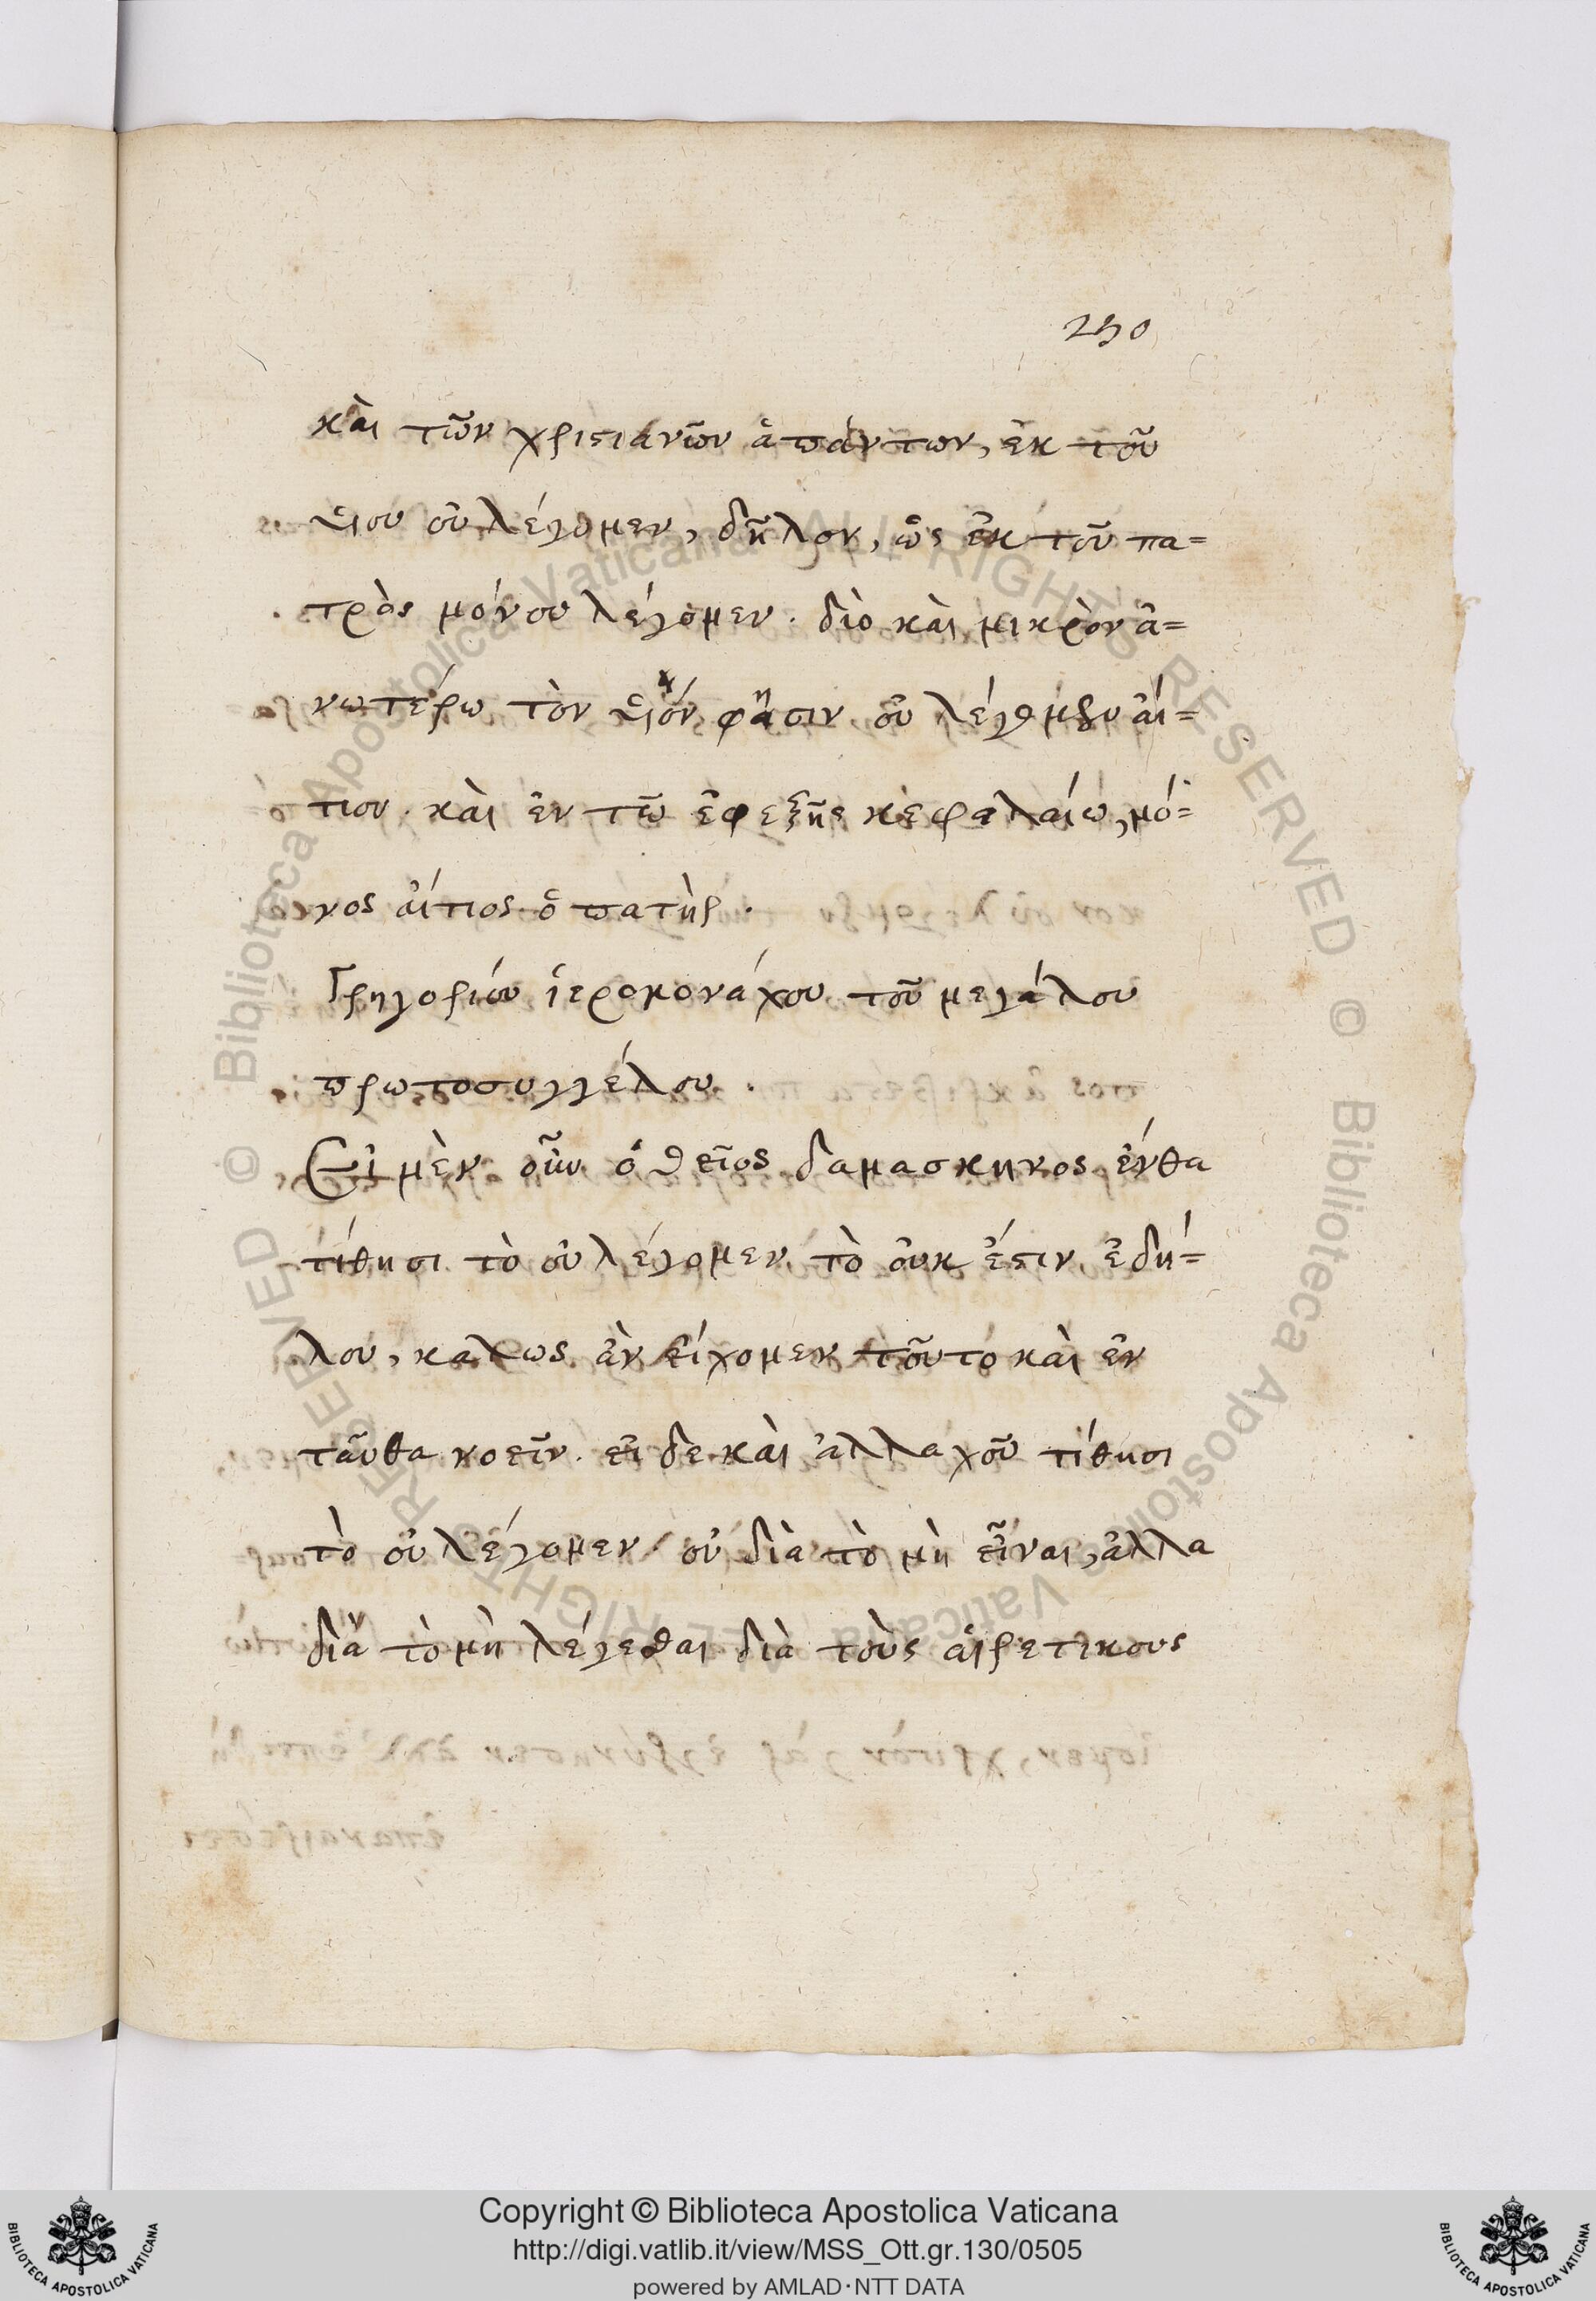 250
καὶ τῶν χριστιανῶν ἁπάντων, ἐκ τοῦ
υἱου οὐ λέγομεν, δῆλον, ὡς ἐκ τοῦ πα=
τρὸς μόνου λέγομεν. διὸ καὶ μικρὸν ἀ=
νωτέρω τὸν υἱόν φησιν οὐ λέγομεν αἴ=
τιον. καὶ ἐν τῶ ἐφεξῆς κεφαλαίω, μό=
νος αἴτιος ὁ πατὴρ.
Γρηγορίου ἱερομονάχου τοῦ μεγάλου
πρωτοσυγγέλου.
Εἰ μὲν οὖν ὁ θεῖος δαμασκηνος ἔνθα
τίθησι τὸ οὐ λέγομεν τὸ οὐκ ἔστιν ἐδή=
λου, καλως ἀν εἴχομεν τοῦτο καὶ ἐν
ταῦθα νοεῖν. εἰ δε καὶ ἀλλαχοῦ τίθησι
τὸ οὐ λέγομεν οὐ διὰ τὸ μὴ εἶναι, ἀλλα
διὰ τὸ μὴ λέγεσθαι διὰ τοὺς αἱρετικους
Copyright © Biblioteca Apostolica Vaticana
http://digi.vatlib.it/view/MSS_Ott.gr.130/0505
powered by AMLAD·NTT DATA
BIBLIOTECA APOSTOLICA VATICANA
BIBLIOTECA APOSTOLICA VATICANA
© Biblioteca Apostolica Vaticana ALL RIGHTS RESERVED
© Biblioteca Apostolica Vaticana ALL RIGHTS RESERVED